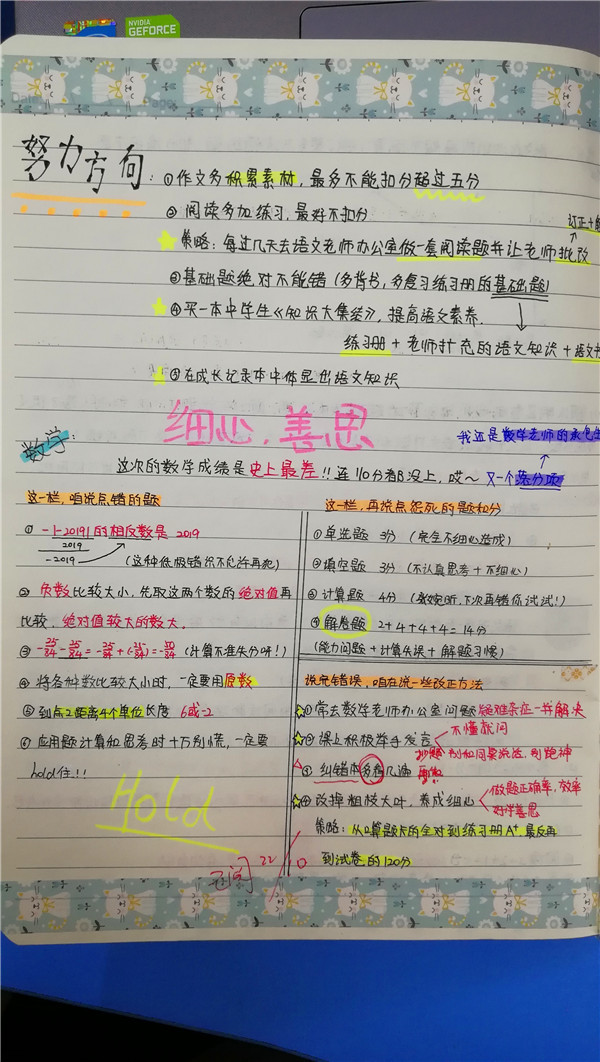 NVIDIA
GEFORCE
努力方向：①作文多积累素材，最多不能扣分超过五分
②阅读多加练习，最好不扣分
订正+
策略：每过几天去语文老师办公室做一套阅读题并让老师批改
③基础题绝对不能错（多背书，多复习练习册的基础题）
④买一本中学生《知识大集结》，提高语文素养.
练习册+老师扩充的语文知识+语文书
⑤在成长记录本中体显出语文知识
细心，善思
数学：
我还是数学老师的
这次的数学成绩是史上最差!!连110分都没上，哎～又一个荡分项
这一栏，咱说点错的题
①-|-2019|的相反数是 2019
2019
-2019
（这种低极错误不允许再犯）
②负数比较大小，先取这两个数的绝对值再
比较，绝对值较大的数大.
③-25/84-25/84=-25/84+(-25/84)=-50/84（计算不准失分呀!）
④将各种数比较大小时，一定要用原数
⑤到点2距离4个单位长度 6或-2
⑥应用题计算和思考时千万别慌，一定要
hold住!!
Hold
这一栏，再说点怨死的题和分
①单选题 3分（完全不细心造成）
②填空题 3分（不认真思考+不细心）
③计算题 4分（张婉昕，下次再错你试试!）
④解答题 2+4+4+4=14分
（能力问题+计算失误+解题习惯）
说完错误，咱在说一些改正方法
①常去数学老师办公室问题疑难杂症一并解决
②课上积极举手发言
不懂就问
别和同桌说话，别跑神
③纠错本多看几遍
④改掉粗枝大叶，养成细心
做题正确率，效率
好学善思
策略：从口算题卡的全对到练习册A+最后再
到试卷的120分
22/10